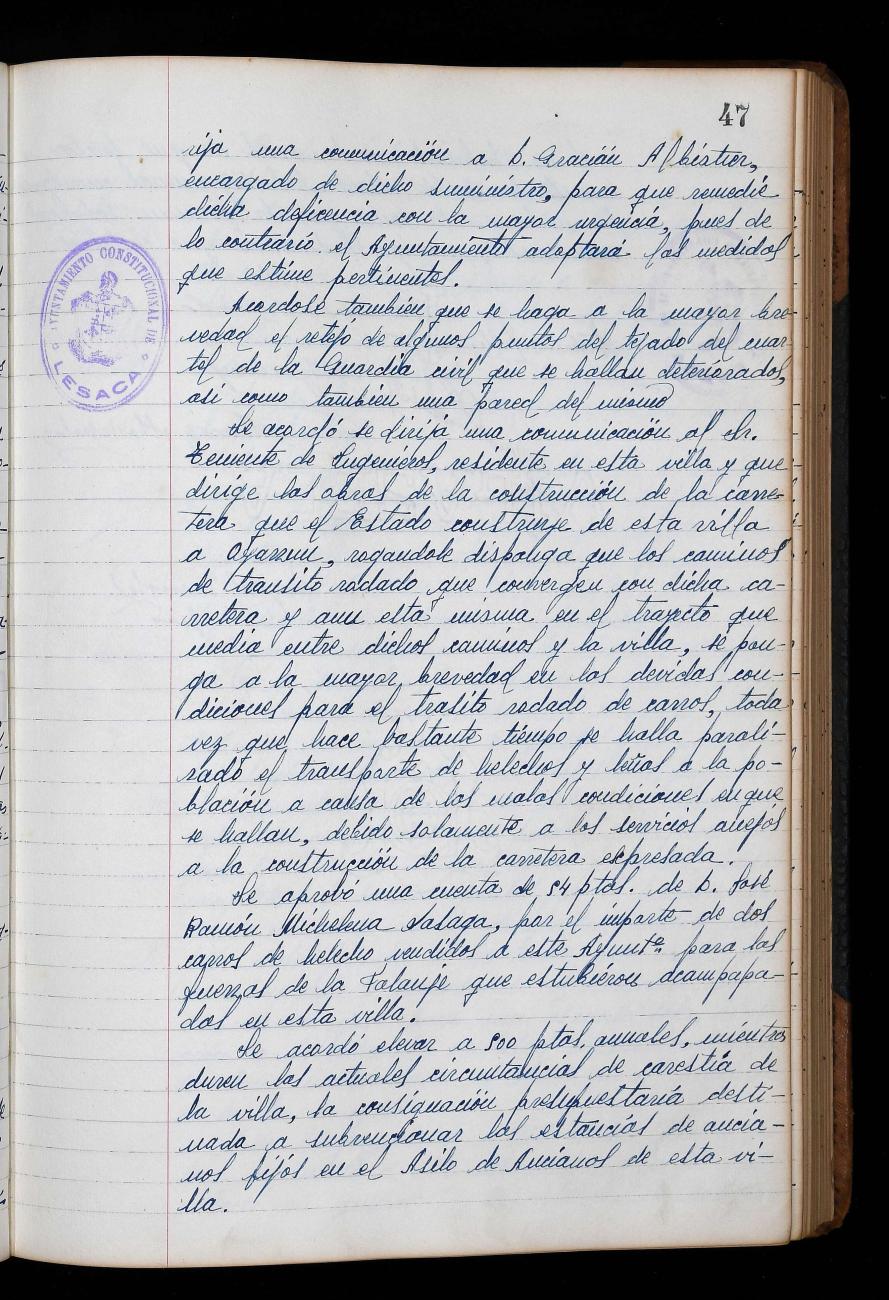 47
rija una comunicación a D. Gracián Albistur,
encargado de dicho suministro, para que remedie
dicha deficencia con la mayor urgencia, pues de
lo contrario el Ayuntamiento adoptará las medidas
que estime pertinentes.
AYUNTAMIENTO CONSTITUCIONAL DE
LESACA
Acordose también que se haga a la mayor bre-
vedad el retejo de algunos puntos del tejado del cuar-
tel de la Guardia civil que se hallan deteriorados,
así como también una pared del mismo
Se acordó se dirija una comunicación al Sr.
Teniente de Ingenieros, residente en esta villa y que
dirige las obras de la construcción de la carre-
tera que el Estado construye de esta villa
a Oyarzun, rogandole disponga que los caminos
de transito rodado que convergen con dicha ca-
rretera y aun esta misma en el trayecto que
media entre dichos caminos y la villa, se pon-
ga a la mayor brevedad en las devidas con-
diciones para el trasito rodado de carros, toda
vez que hace bastante tiempo se halla parali-
zado el transporte de helechos y leñas a la po-
blación a causa de las malas condiciones en que
se hallan, debido solamente a los servicios anejos
a la construcción de la carretera expresada.
Se aprobó una cuenta de 54 ptas. de D. José
Ramón Michelena Sasaga, por el importe de dos
carros de helecho vendidos a este Ayuntº para las
fuerzas de la Falanje que estubieron acampapa-
dos en esta villa.
Se acordó elevar a 500 ptas, anuales, mientras
duren las actuales circuntancias de carestía de
la villa, la consignación presupuestaria desti-
nada a subvencionar las estancias de ancia-
nos fijos en el Asilo de Ancianos de esta vi-
lla.